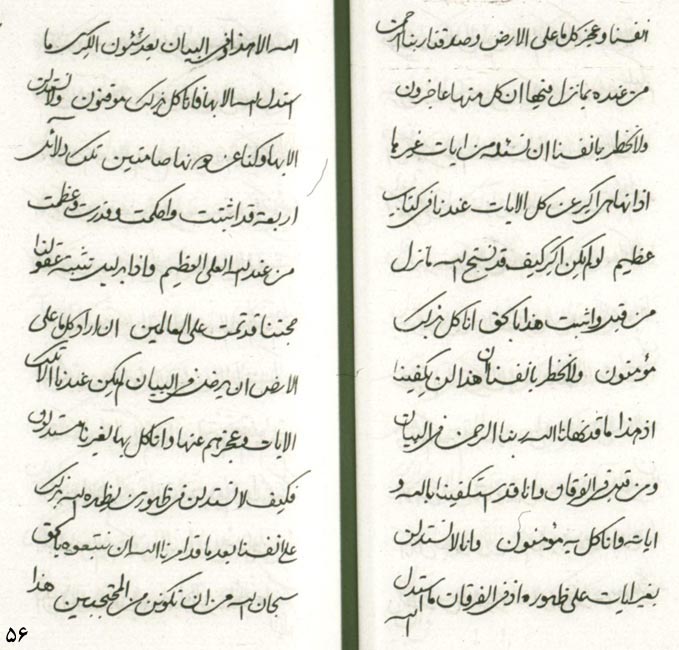 انفسنا وعجز كل ما على الارض وصدقنا ربنا الرحمن
من عنده بما نزل فيها ان كل منها عاجزون
ولا نخطر بانفسنا ان نسئله من ايات غيرها
اذ انها هي اكبر عن كل الايات عندنا في كتاب
عظيم لو لم يكن اكبر كيف قد نسخ الله ما نزل
من قبل واثبت هذا بالحق انا كل بذلك
مؤمنون ولا نخطر بانفسنا ان هذا لن يكفينا
اذ هذا ما قد كفانا الله ربنا الرحمن في البيان
ومن قبل في الفرقان وانا قد استكفينا بالله و
اياته وانا كل به مؤمنون وانا لا نستدلن
بغير ايات على ظهوره اذ في الفرقان ما استدل
الله
الله الا هذا وفي البيان بعد شئون الكبرى ما
استدل الله الا بها فانا كل بذلك موقنون ولا نستدلن
الا بها وكنا عن دونها صامتين تلك دلائل
اربعة قد اثبتت واحكمت وقدرت وعظمت
من عند الله العلي العظيم واذا يريد تثبته عقولنا
حجتنا قد تمت على العالمين ان اراد كل ما على
الارض ان يدخلن في البيان لم يكن عندنا الا تلك
الايات وعجزهم عنها وانا كل بها لغيرنا مستدلون
فكيف لا نستدلن في ظهور من يظهره الله بذلك
على انفسنا بعد ما قد امرنا الله ان نتبعوه بالحق
سبحان الله من ان نكونن من المحتجبين هذا
۵۶